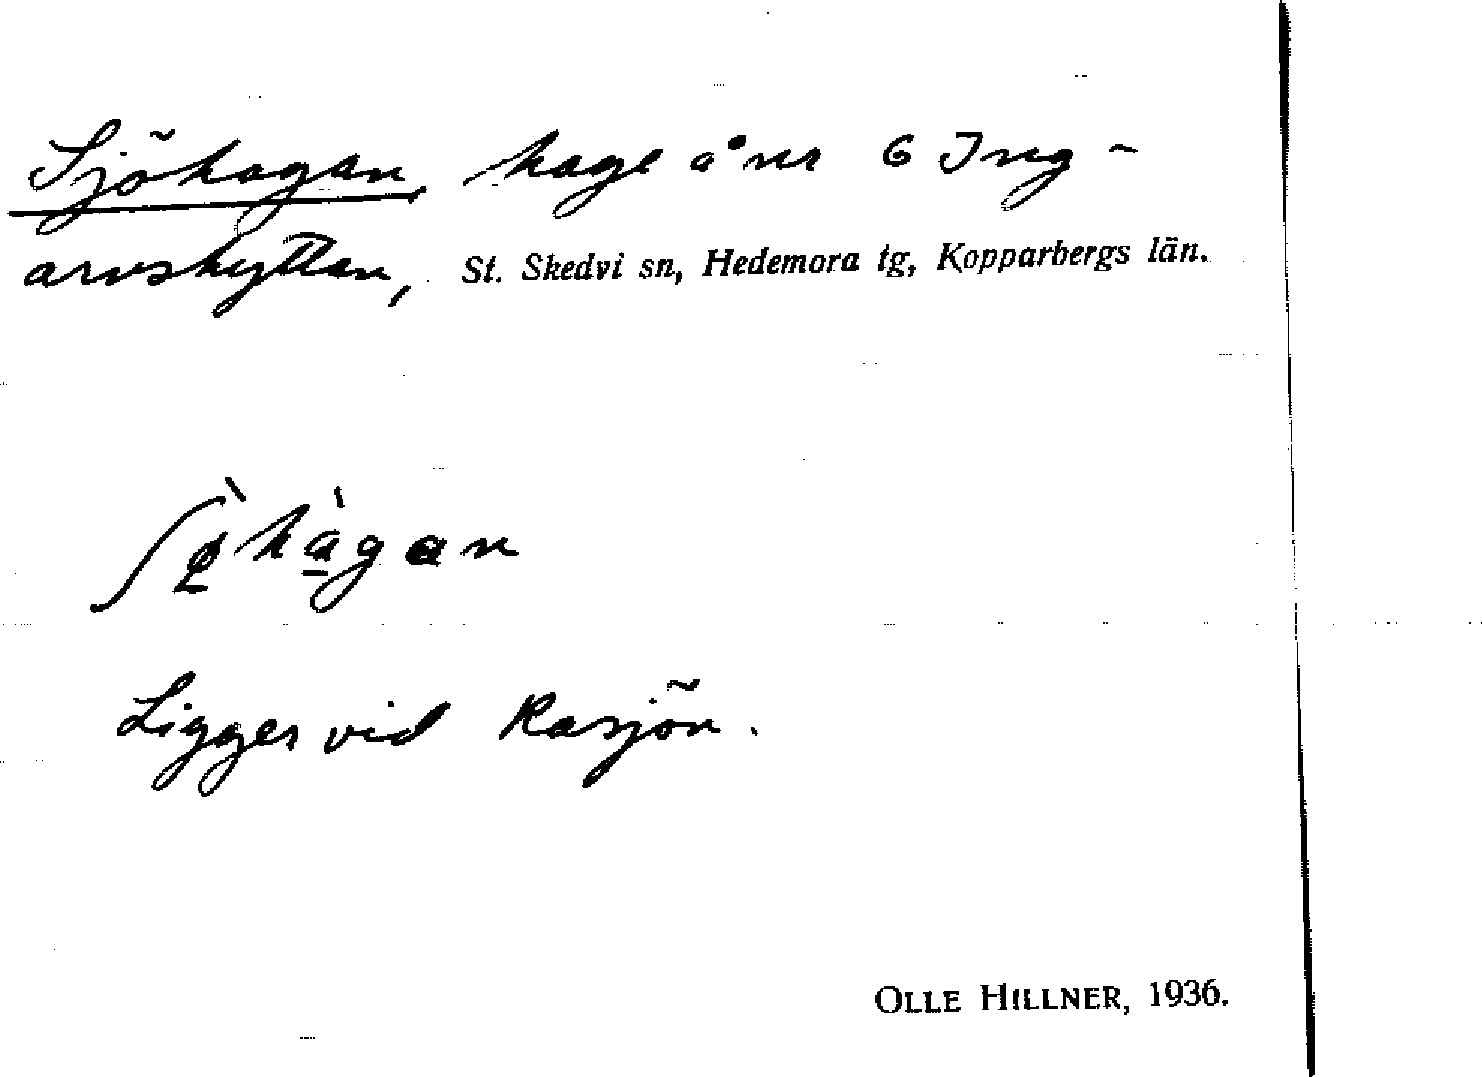 Sjöhagan, hage å nr 6 Ing-
arvshyttan, St. Skedvi sn, Hedemora tg, Kopparbergs län.
Ligger vid Rasjön.
OLLE HILLNER, 1936.